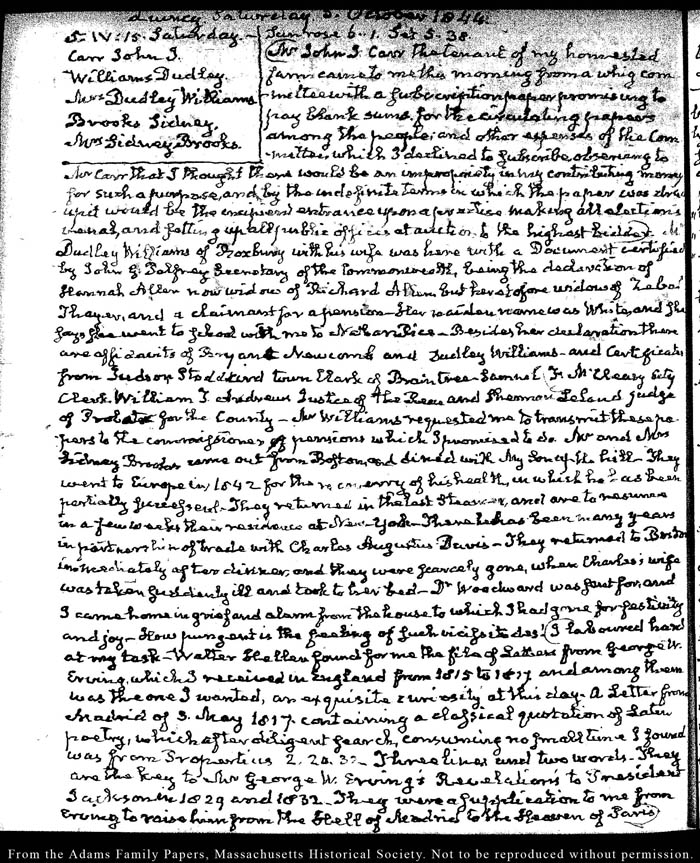 Quincy Saturday 5. October 1844.
5. IV:15. Saturday.
Carr John J.
Williams Dudley.
Mrs Dudley Williams
Brooks Sidney.
Mrs Sidney Brooks.
Sun rose 6-1. Set 5-38
Mr John J. Carr the tenant of my homested
farm came to me this morning from a whig com-
mittee with a subscription paper promising to
pay blank sums for the circulating papers
among the people; and other expenses of the Com-
mittee, which I declined to subscribe, observing to
Mr Carr that I thought there would be an impropriety in my contributing money
for such a purpose, and by the indefinite terms in which the paper was drawn
up it would be the incipient entrance upon a practice making all elections
venal, and setting up all public offices at auction, to the highest bidder. Mr
Dudley Williams of Roxbury with his wife was here with a Document certified
by John G Palfrey Secretary of the Commonwealth, being the declaration of
Hannah Allen now widow of Richard Allen, but heretofore widow of
Thayer, and a claimant for a pension— Her maiden name was White, and she
says she went to school with me to — Besides her declaration there
are affidavits of Bryant Newcomb and Dudley Williams— and Certificates
from Judson Stoddard town Clerk of Braintree— Samuel F. McCleary City
Clerk. William T. Andrews Justice of the Peace and Sherman Leland judge
of Probate for the County— Mr Williams requested me to transmit these pa-
pers to the commissioner of pensions which I promised to do. Mr and Mrs
Sidney Brooks came out from Boston, and dined with My Son up the hill— They
went to Europe in 1842 for the recovery of his health, in which he has been
partially successful— They returned in the last Steamer, and are to resume
in a few weeks their residence at New-York— There he has been many years
in partnership of trade with Charles Augustus Davis— They returned to Boston
immediately after dinner, and they were scarcely gone, when Charles's wife
was taken suddenly ill and took to her bed— Dr Woodward was sent for, and
I came home in grief and alarm from the house to which I had gone for festivity
and joy— How pungent is the feeling of such vicissitudes! I laboured hard
at my task— Walter Hellen found for me the file of Letters from George W.
Erving, which I received in England from 1815 to 1817 and among them
was the one I wanted, an exquisite curiosity at this day. A Letter from
Madrid of 3. May 1817 containing a classical quotation of Latin
poetry, which after diligent search, consuming no small time I found
was from Propertius 2. 24. 32— Three lines and two words— They
are the key to Mr George W. Erving's Revelations to President
Jackson in 1829 and 1832. They were a supplication to me from
Erving to raise him from the Hell of Madrid to the Heaven of Paris
From the Adams Family Papers, Massachusetts Historical Society. Not to be reproduced without permission.